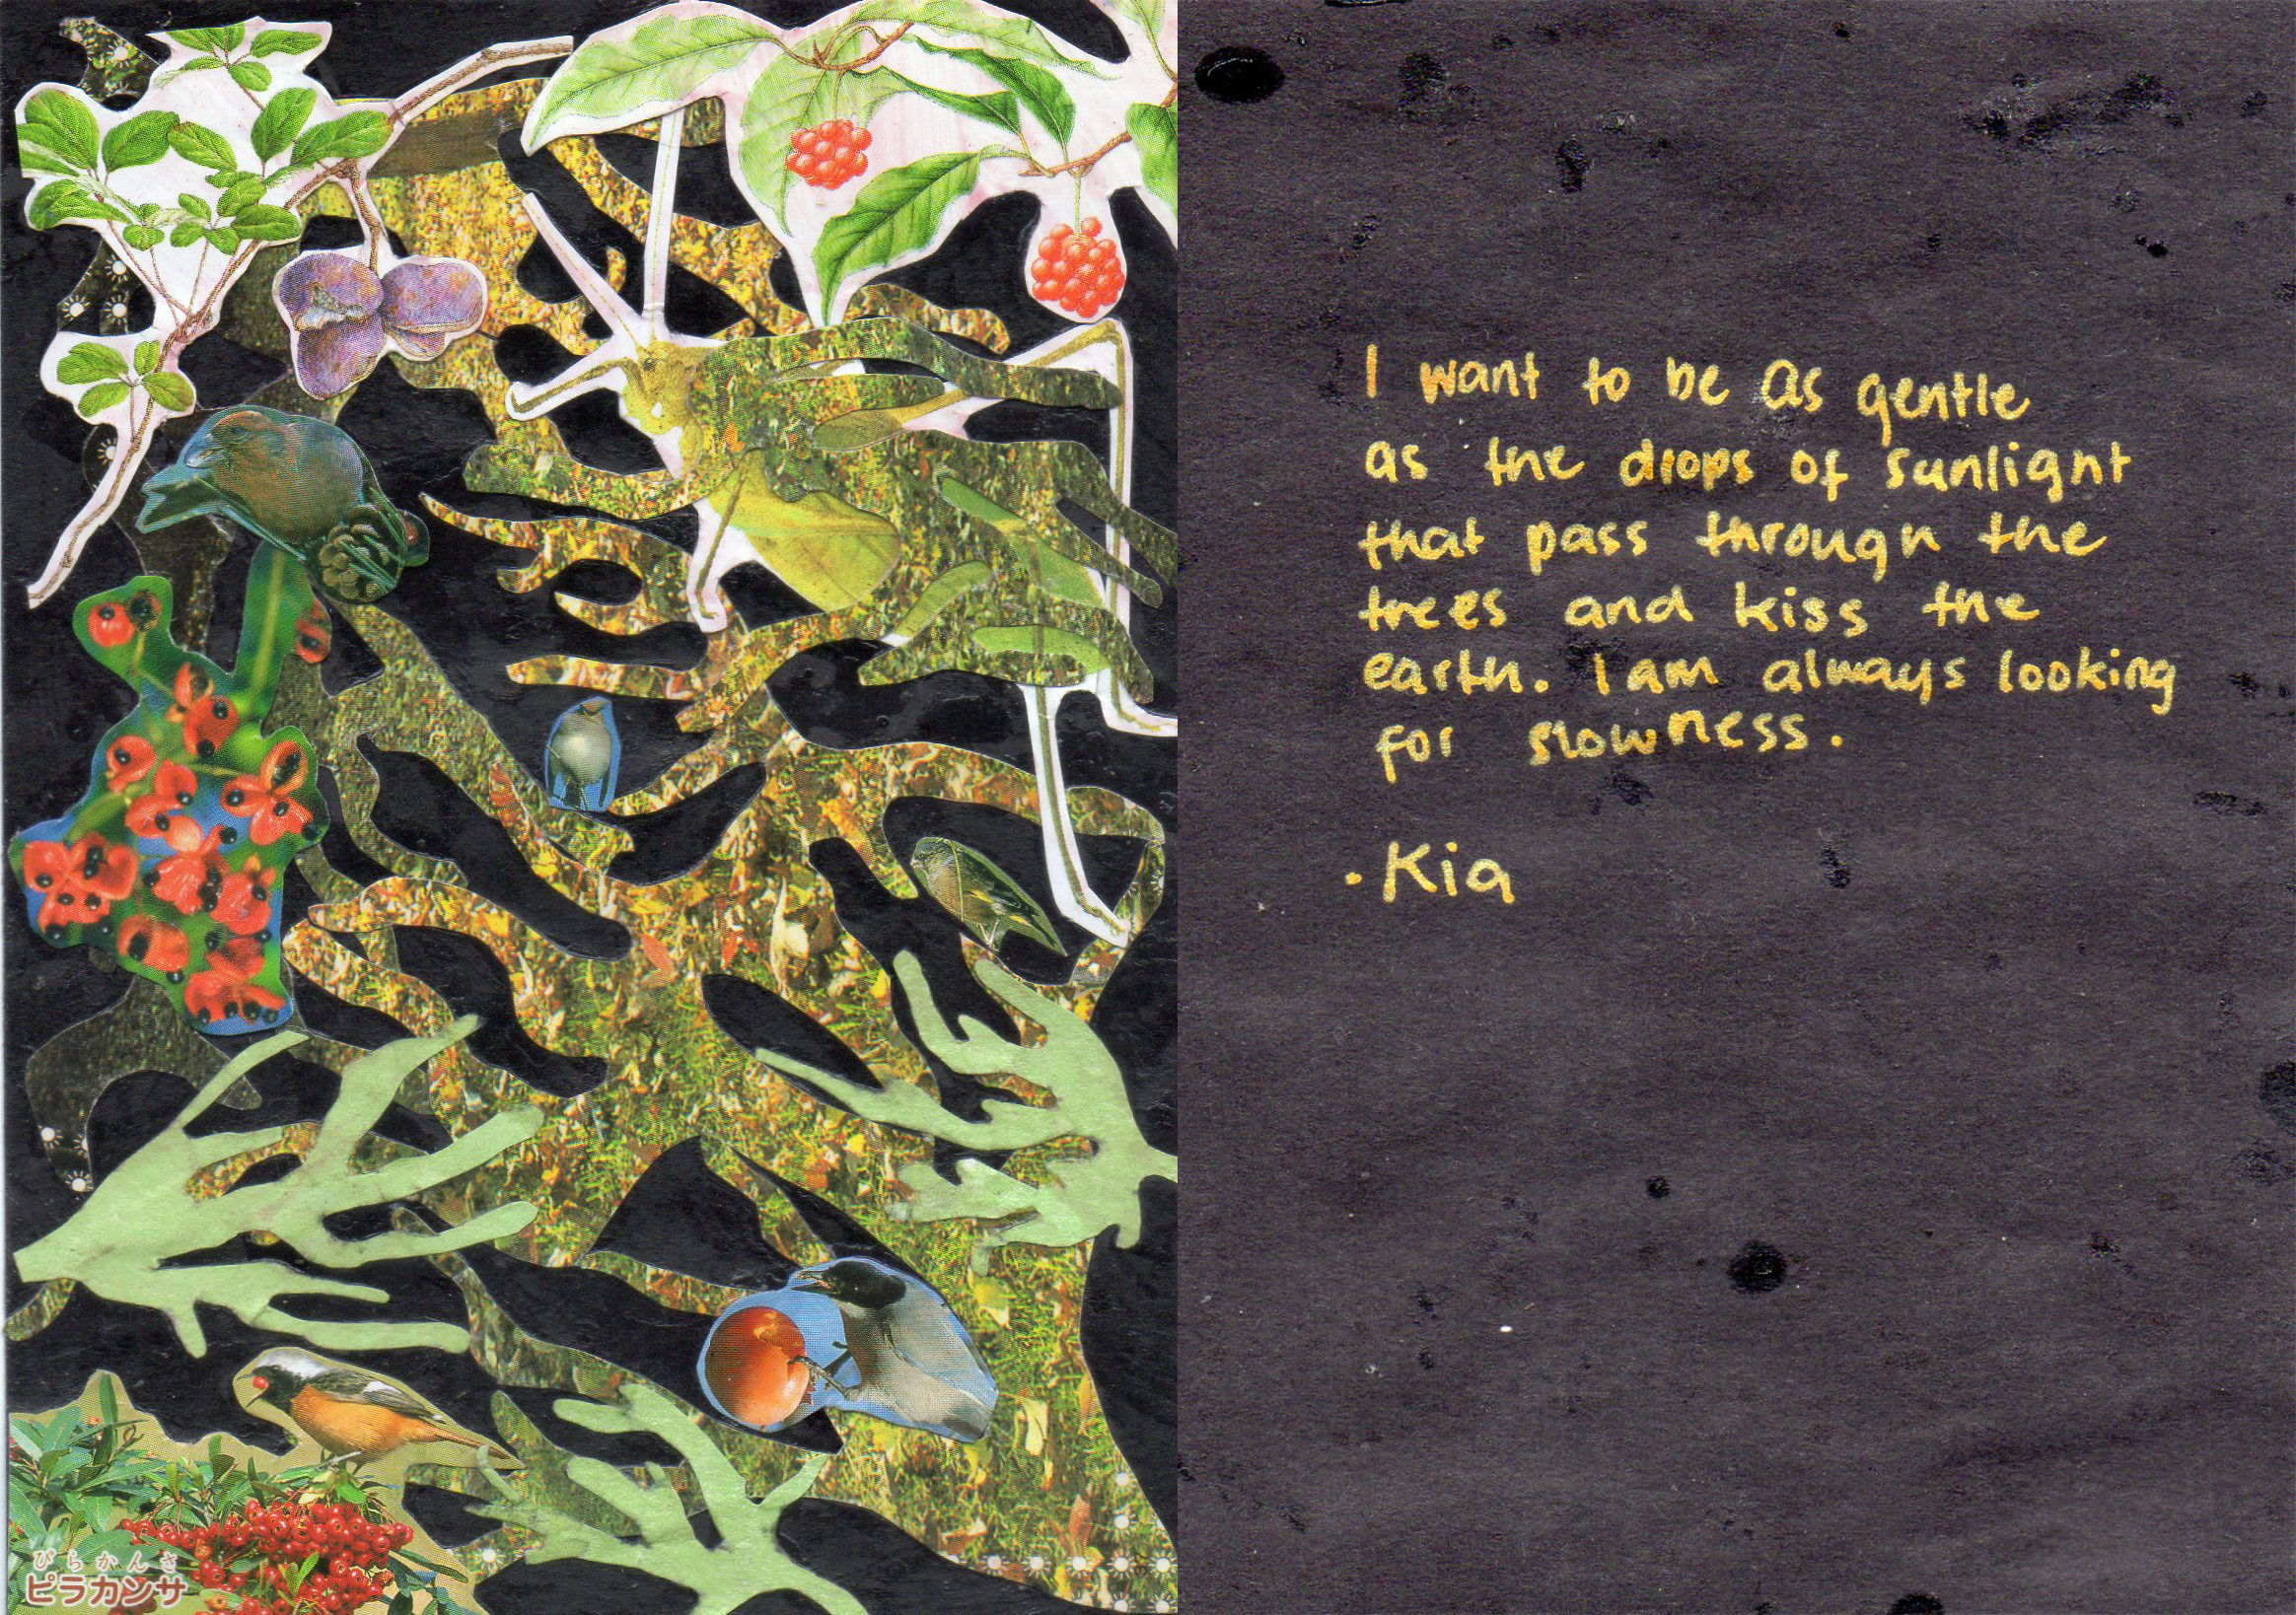 ぴらかんさ
ピラカンサ
I want to be as gentle
as the drops of sunlight
that pass through the
trees and kiss the
earth. I am always looking
for slowness.
· Kia